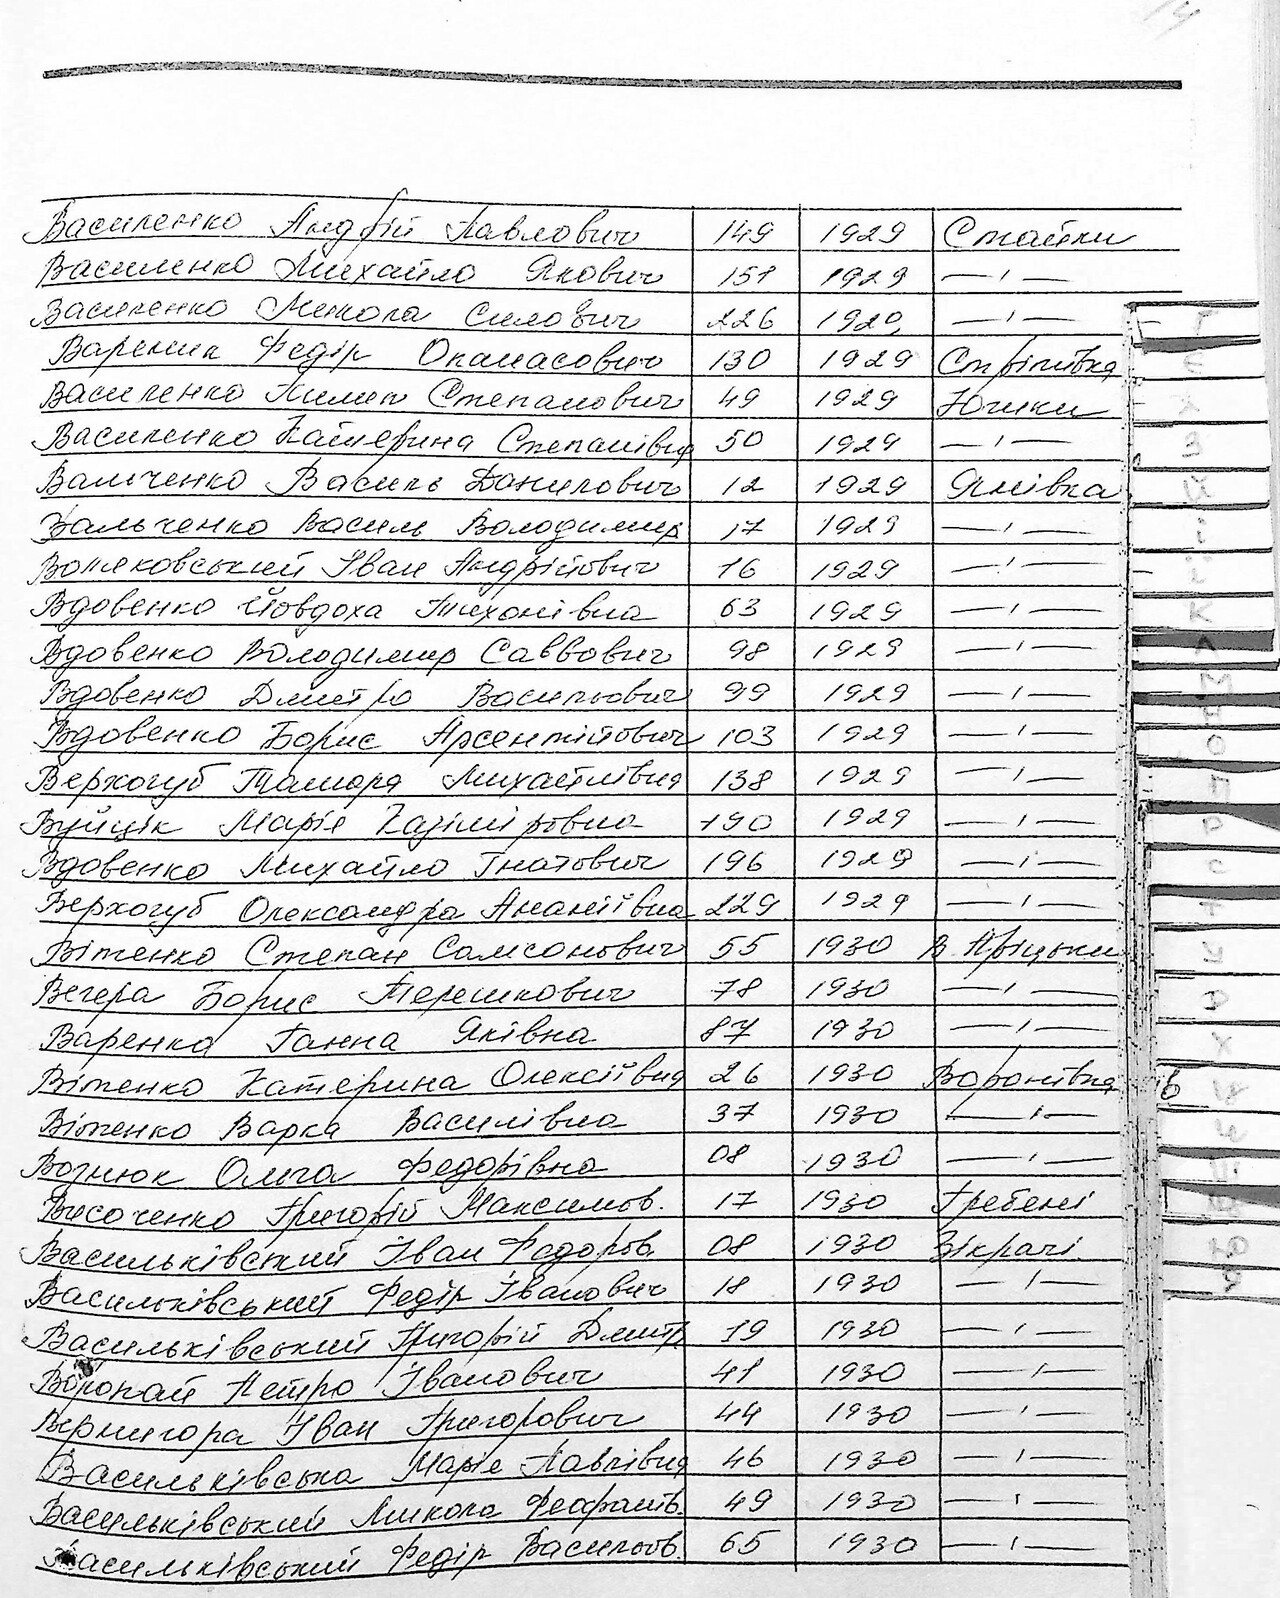 Василенко Андрій Павлович 149 1929 Стайки
Василенко Михайло Якович 151 1929 —ı—
Василенко Микола Силович 226 1929 —ı—
Вареник Федір Опанасович 130 1929 Стрітівка
Василенко Килип Степанович 49 1929 Юшки
Василенко Катерина Степанівна 50 1929 —ı—
Вальченко Василь Данилович 12 1929 Янівка
Вальченко Василь Володимир 17 1929 —ı—
Іван Андрійович 16 1929 —ı—
Вдовенко Йовдоха Тихонівна 63 1929 —ı—
Вдовенко Володимир Саввович 98 1929 —ı—
Вдовенко Дмитро Васильович 99 1929 —ı—
Вдовенко Борис Арсентійович 103 1929 —ı—
Верхогуб Тамара Михайлівна 138 1929 —ı—
Вуйцік Марія Казімірівна 190 1929 —ı—
Вдовенко Михайло Гнатович 196 1929 —ı—
Верхогуб Олександра Ананіївна 229 1929 —ı—
Вітенко Степан Самсонович 55 1930 В.
Вегера Борис Терешкович 78 1930 —ı—
Варенко Ганна Яківна 87 1930 —ı—
Вітенко Катерина Олексіївна 26 1930 Воронівка
Вітенко Варка Василівна 37 1930 —ı—
Вознюк Ольга Федорівна 08 1930 —ı—
Височенко Григорій Максимов. 17 1930 Гребені
Васильківский Іван Федоров. 08 1930 Зікрачі.
Васильківський Федір Іванович 18 1930 —ı—
Васильківський Григорій Дмитр 19 1930 —ı—
Воропай Петро Іванович 41 1930 —ı—
Вернигора Іван Григорович 44 1930 —ı—
Васильківська Марія Павлівна 46 1930 —ı—
Васильківський Микола 49 1930 —ı—
Васильківський Федір Васильов. 65 1930 —ı—